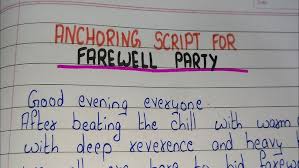 ANCHORING SCRIPT FOR
FAREWELL PARTY
Good evening everyone.
After beating the chill with warm
with deep reverence and heavy
here to bid farew